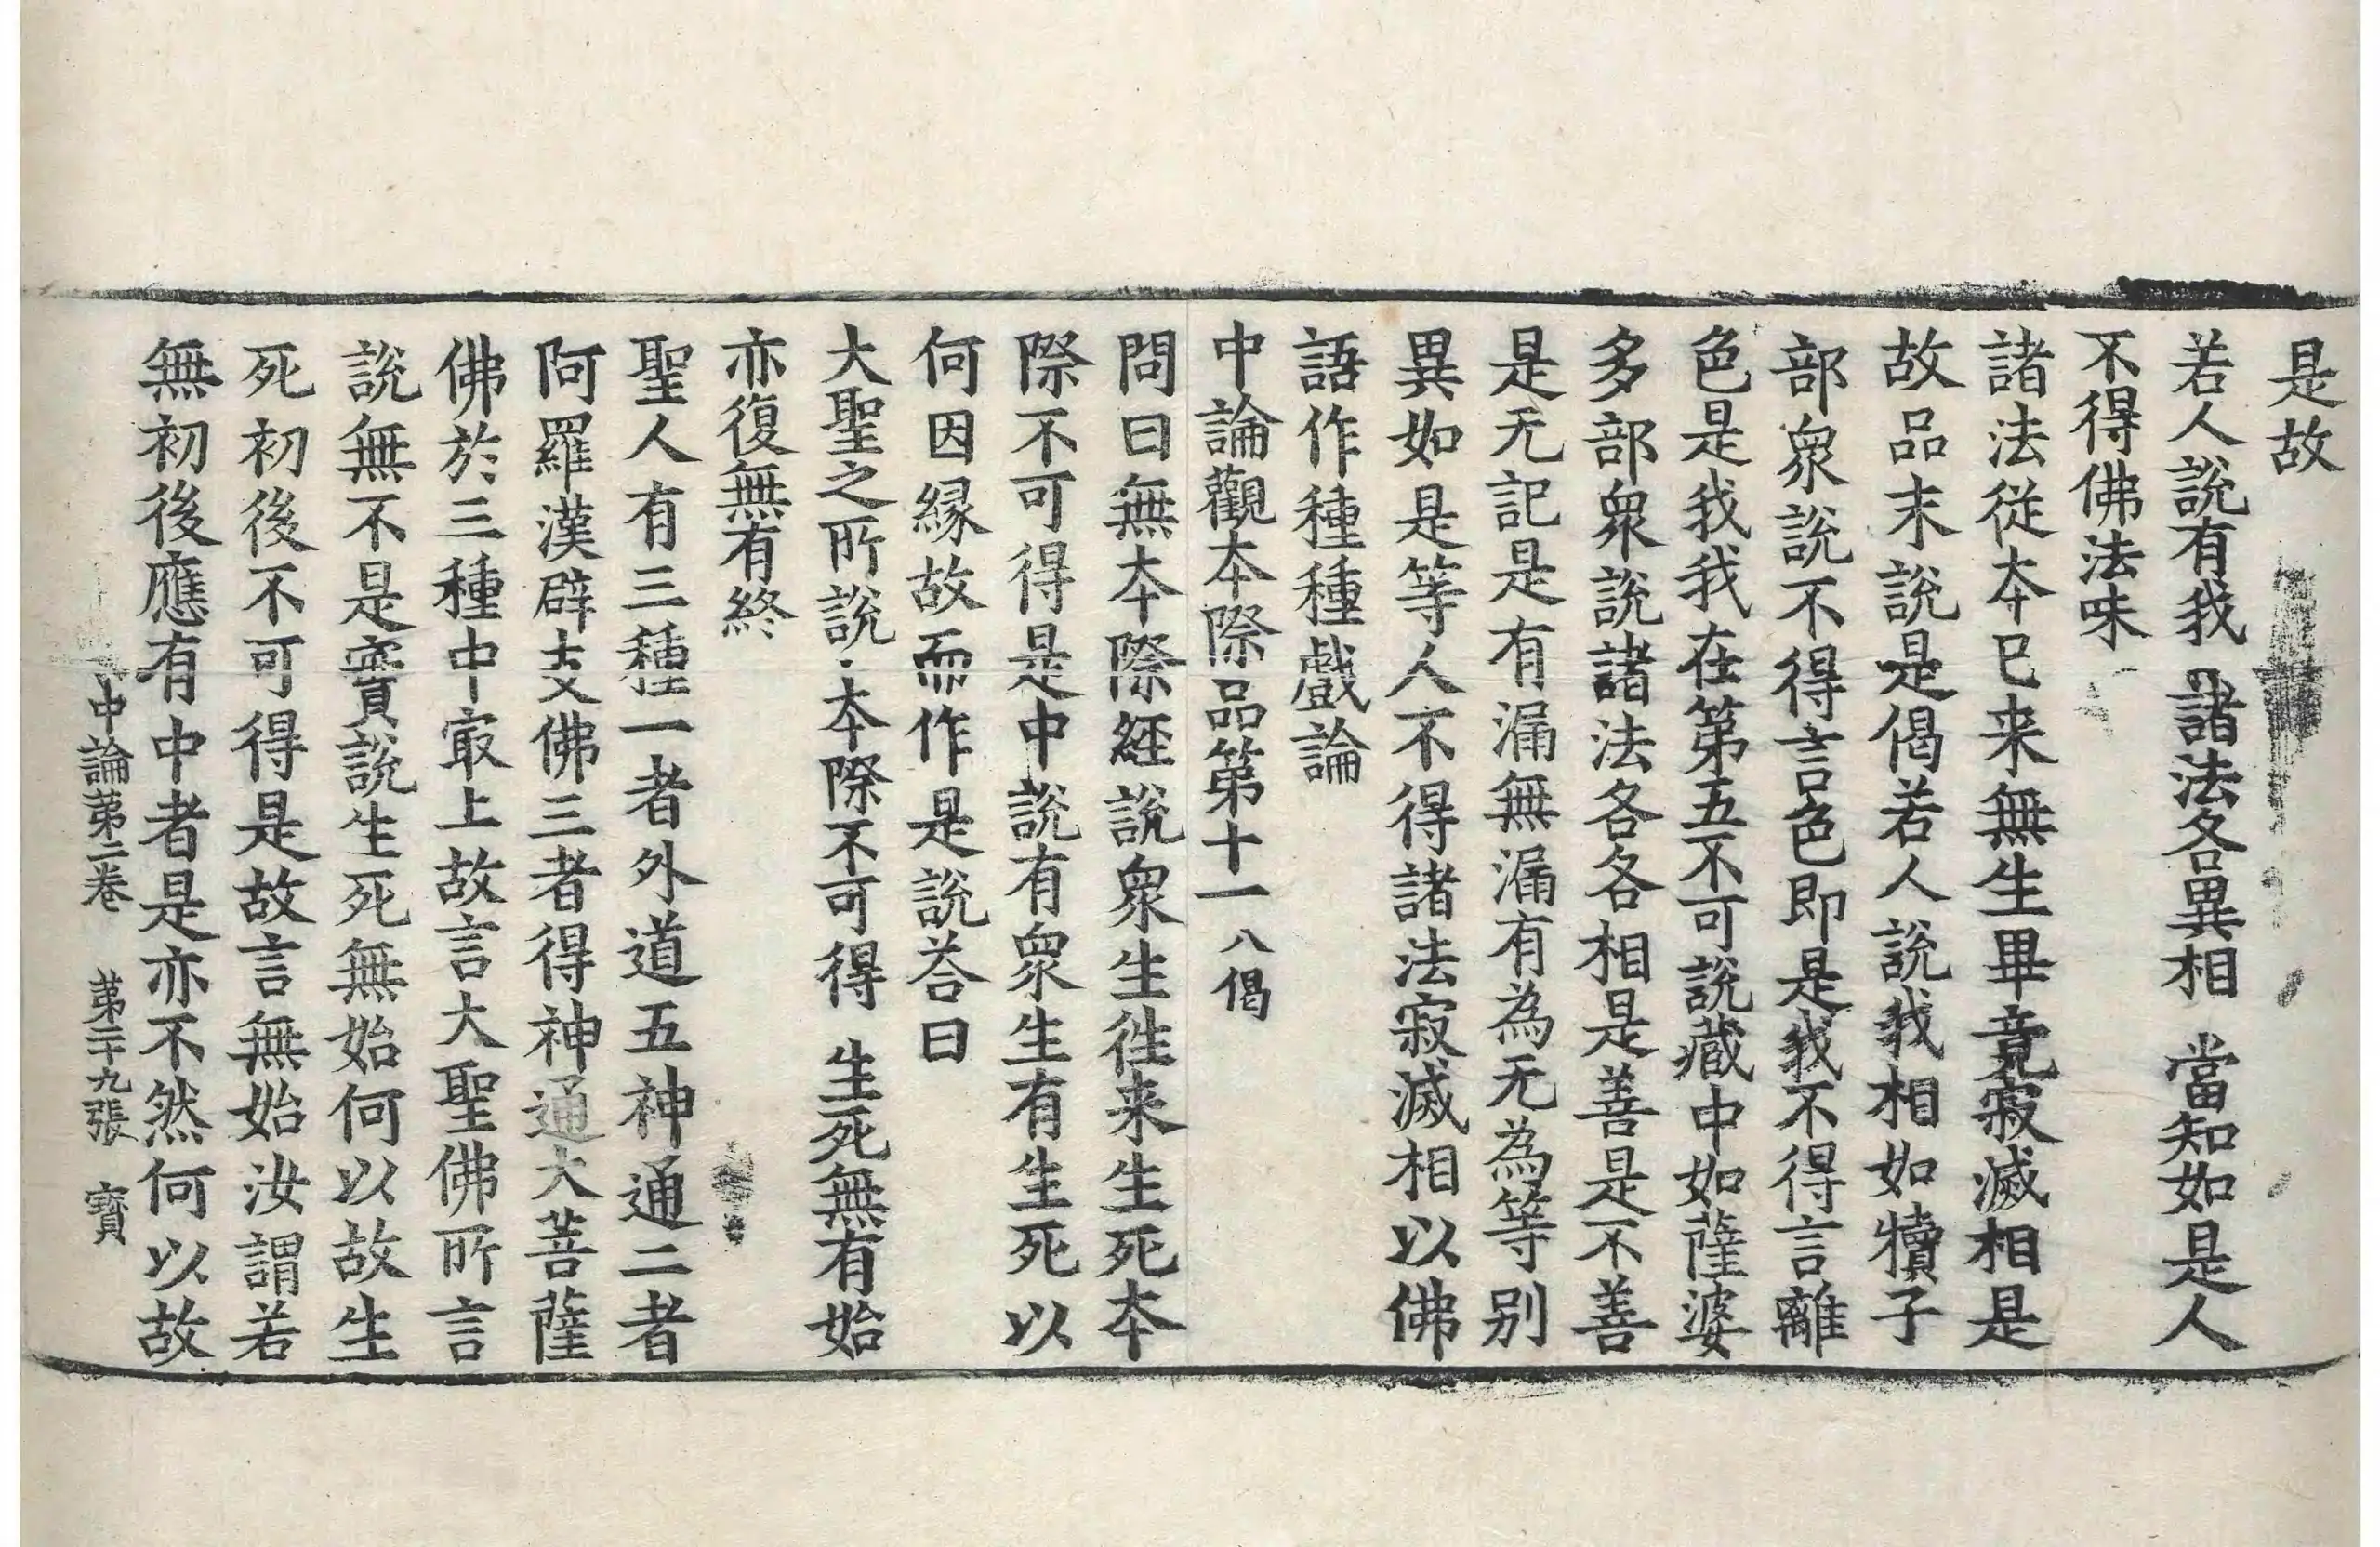 是故
若人說有我 諸法各異相 當知如是人
不得佛法味
諸法從夲已来無生畢竟寂滅相是
故品末說是偈若人說我相如犢子
部衆說不得言色即是我不得言離
色是我我在第五不可說藏中如薩婆
多部衆說諸法各各相是善是不善
是无記是有漏無漏有為无為等别
異如是等人不得諸法寂滅相以佛
語作種種戲論
中論觀夲際品第十一 八偈
問曰無夲際經說衆生徃来生死夲
際不可得是中說有衆生有生死以
何因縁故而作是說荅曰
大聖之所說 夲際不可得 生死無有始
亦復無有終
聖人有三種一者外道五神通二者
阿羅漢辟支佛三者得神通大菩薩
佛於三種中㝡上故言大聖佛所言
說無不是實說生死無始何以故生
死初後不可得是故言無始汝謂若
無初後應有中者是亦不然何以故
中論第二卷 第二十九張 寳